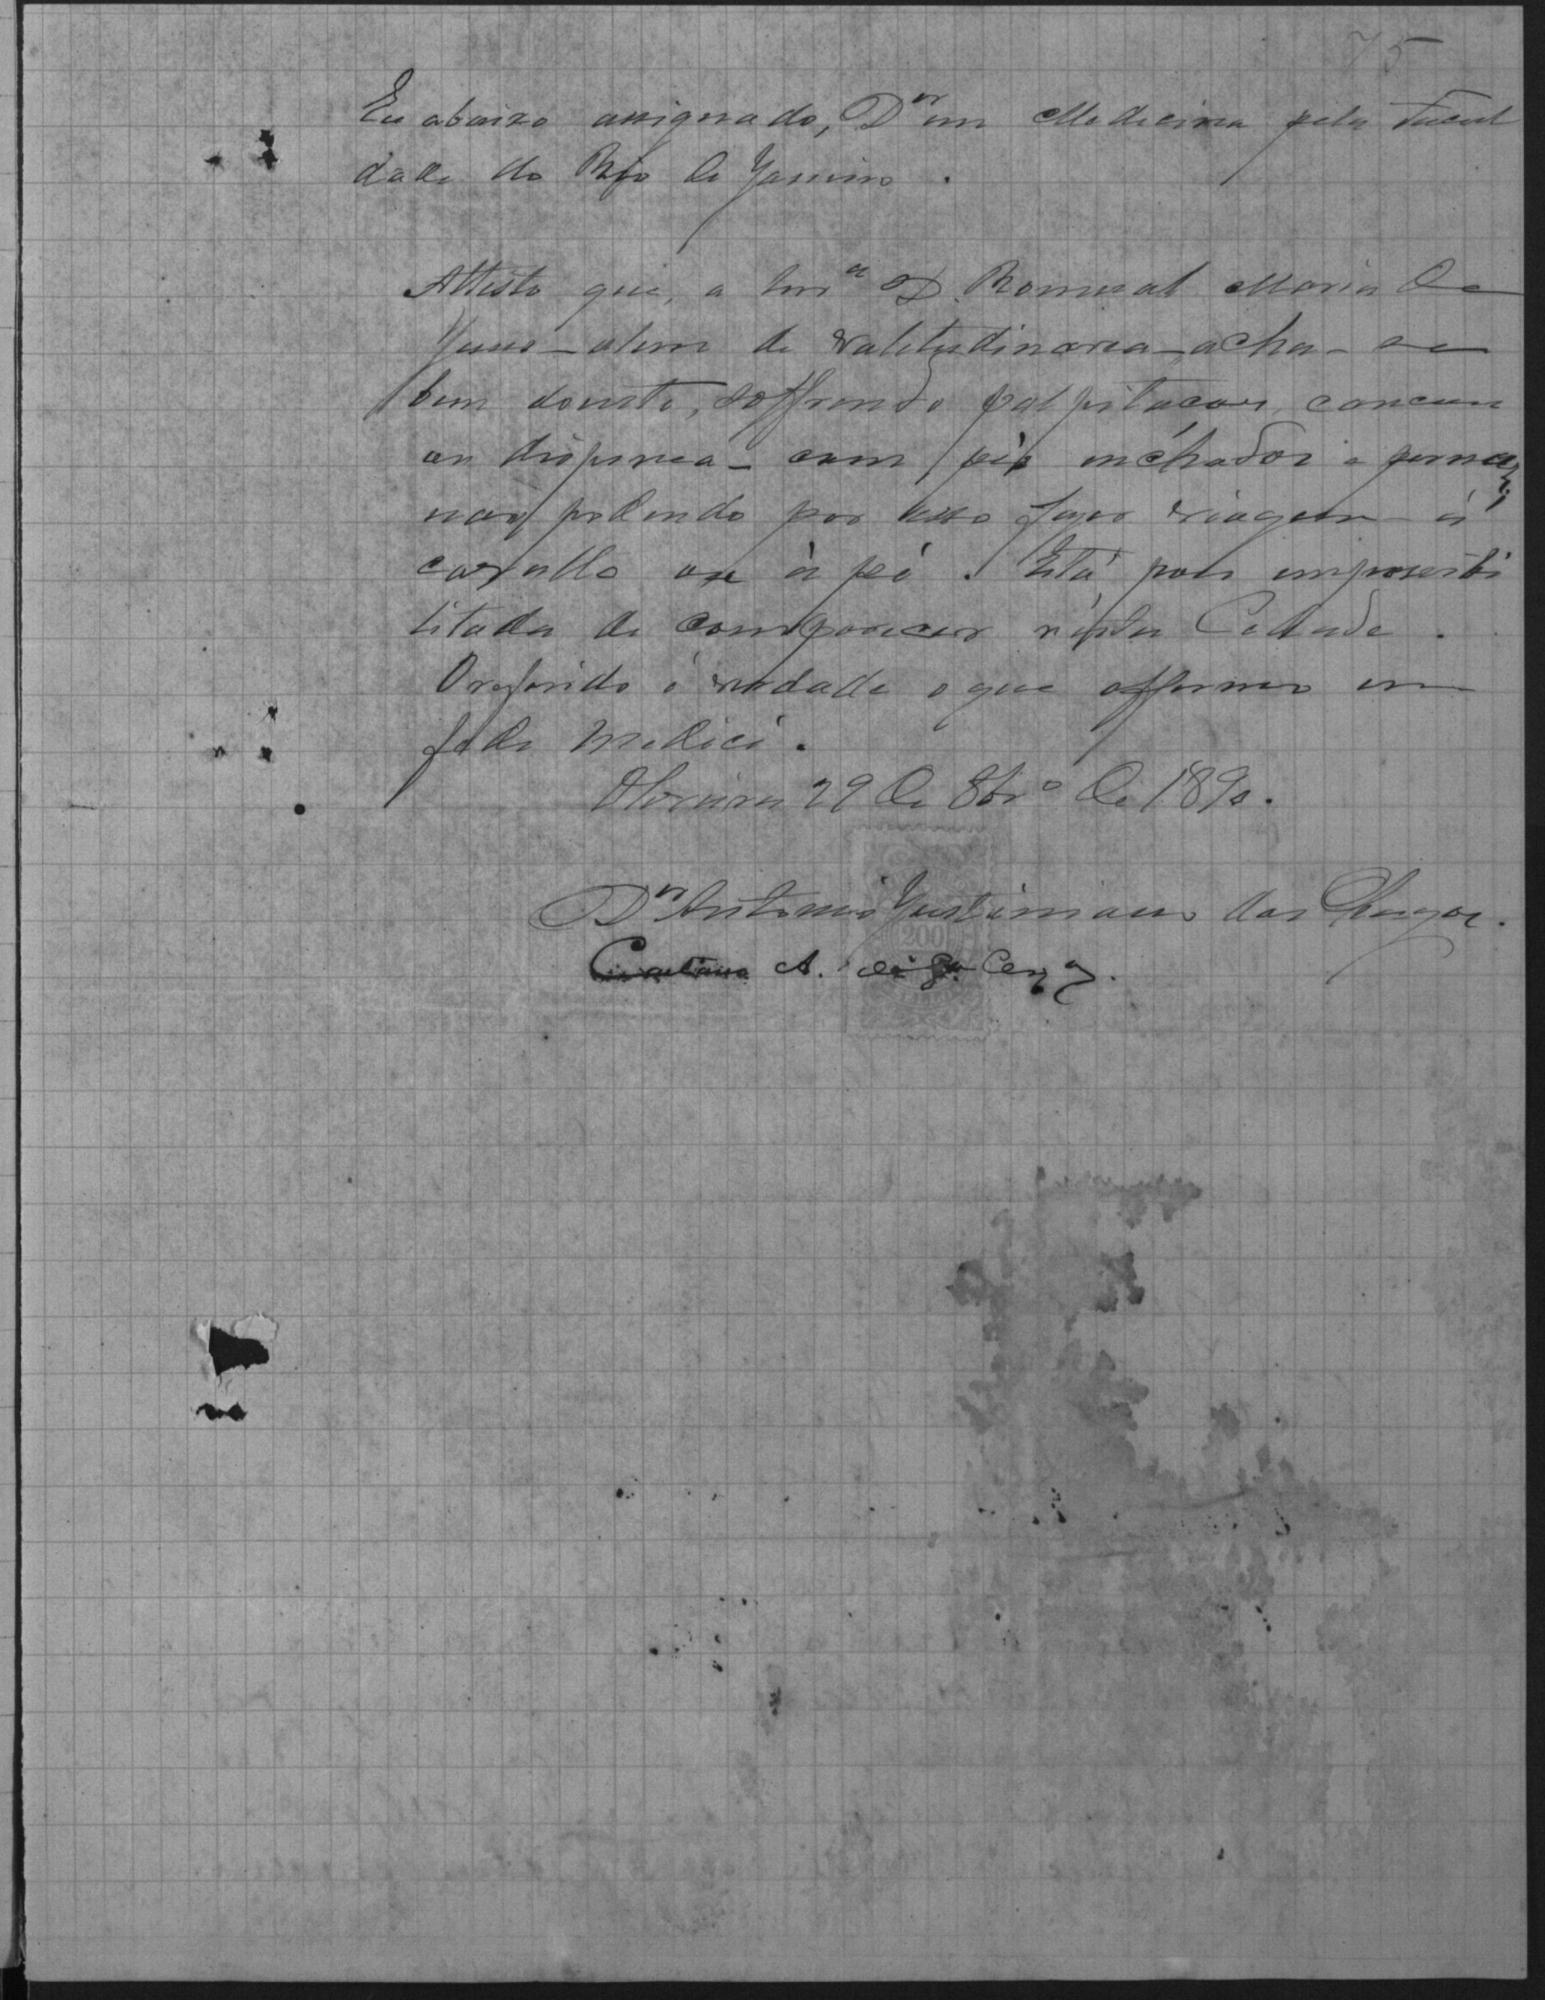 75
Eu abaixo assignado, Dor em Medicina pela Facul
dade do Rio de Janeiro.
Attesto que, a Snra D. Romual Maria de
Jesus – alem de valetudinaria – acha-se
bem doente, soffrendo palpitacoes, cancu
ou dispnea – com pés inchados e pernas,
nao podendo por isso fazer viagem á
cavallo ou á pé. Está pois impossibi
litada de comparecer n'esta Cidade.
O referido é verdade o que affirmo em
fede medici.
29 de 8bro de 1890.
Dor Antonio Justiniano das Chagas.
Caetano A. de
200